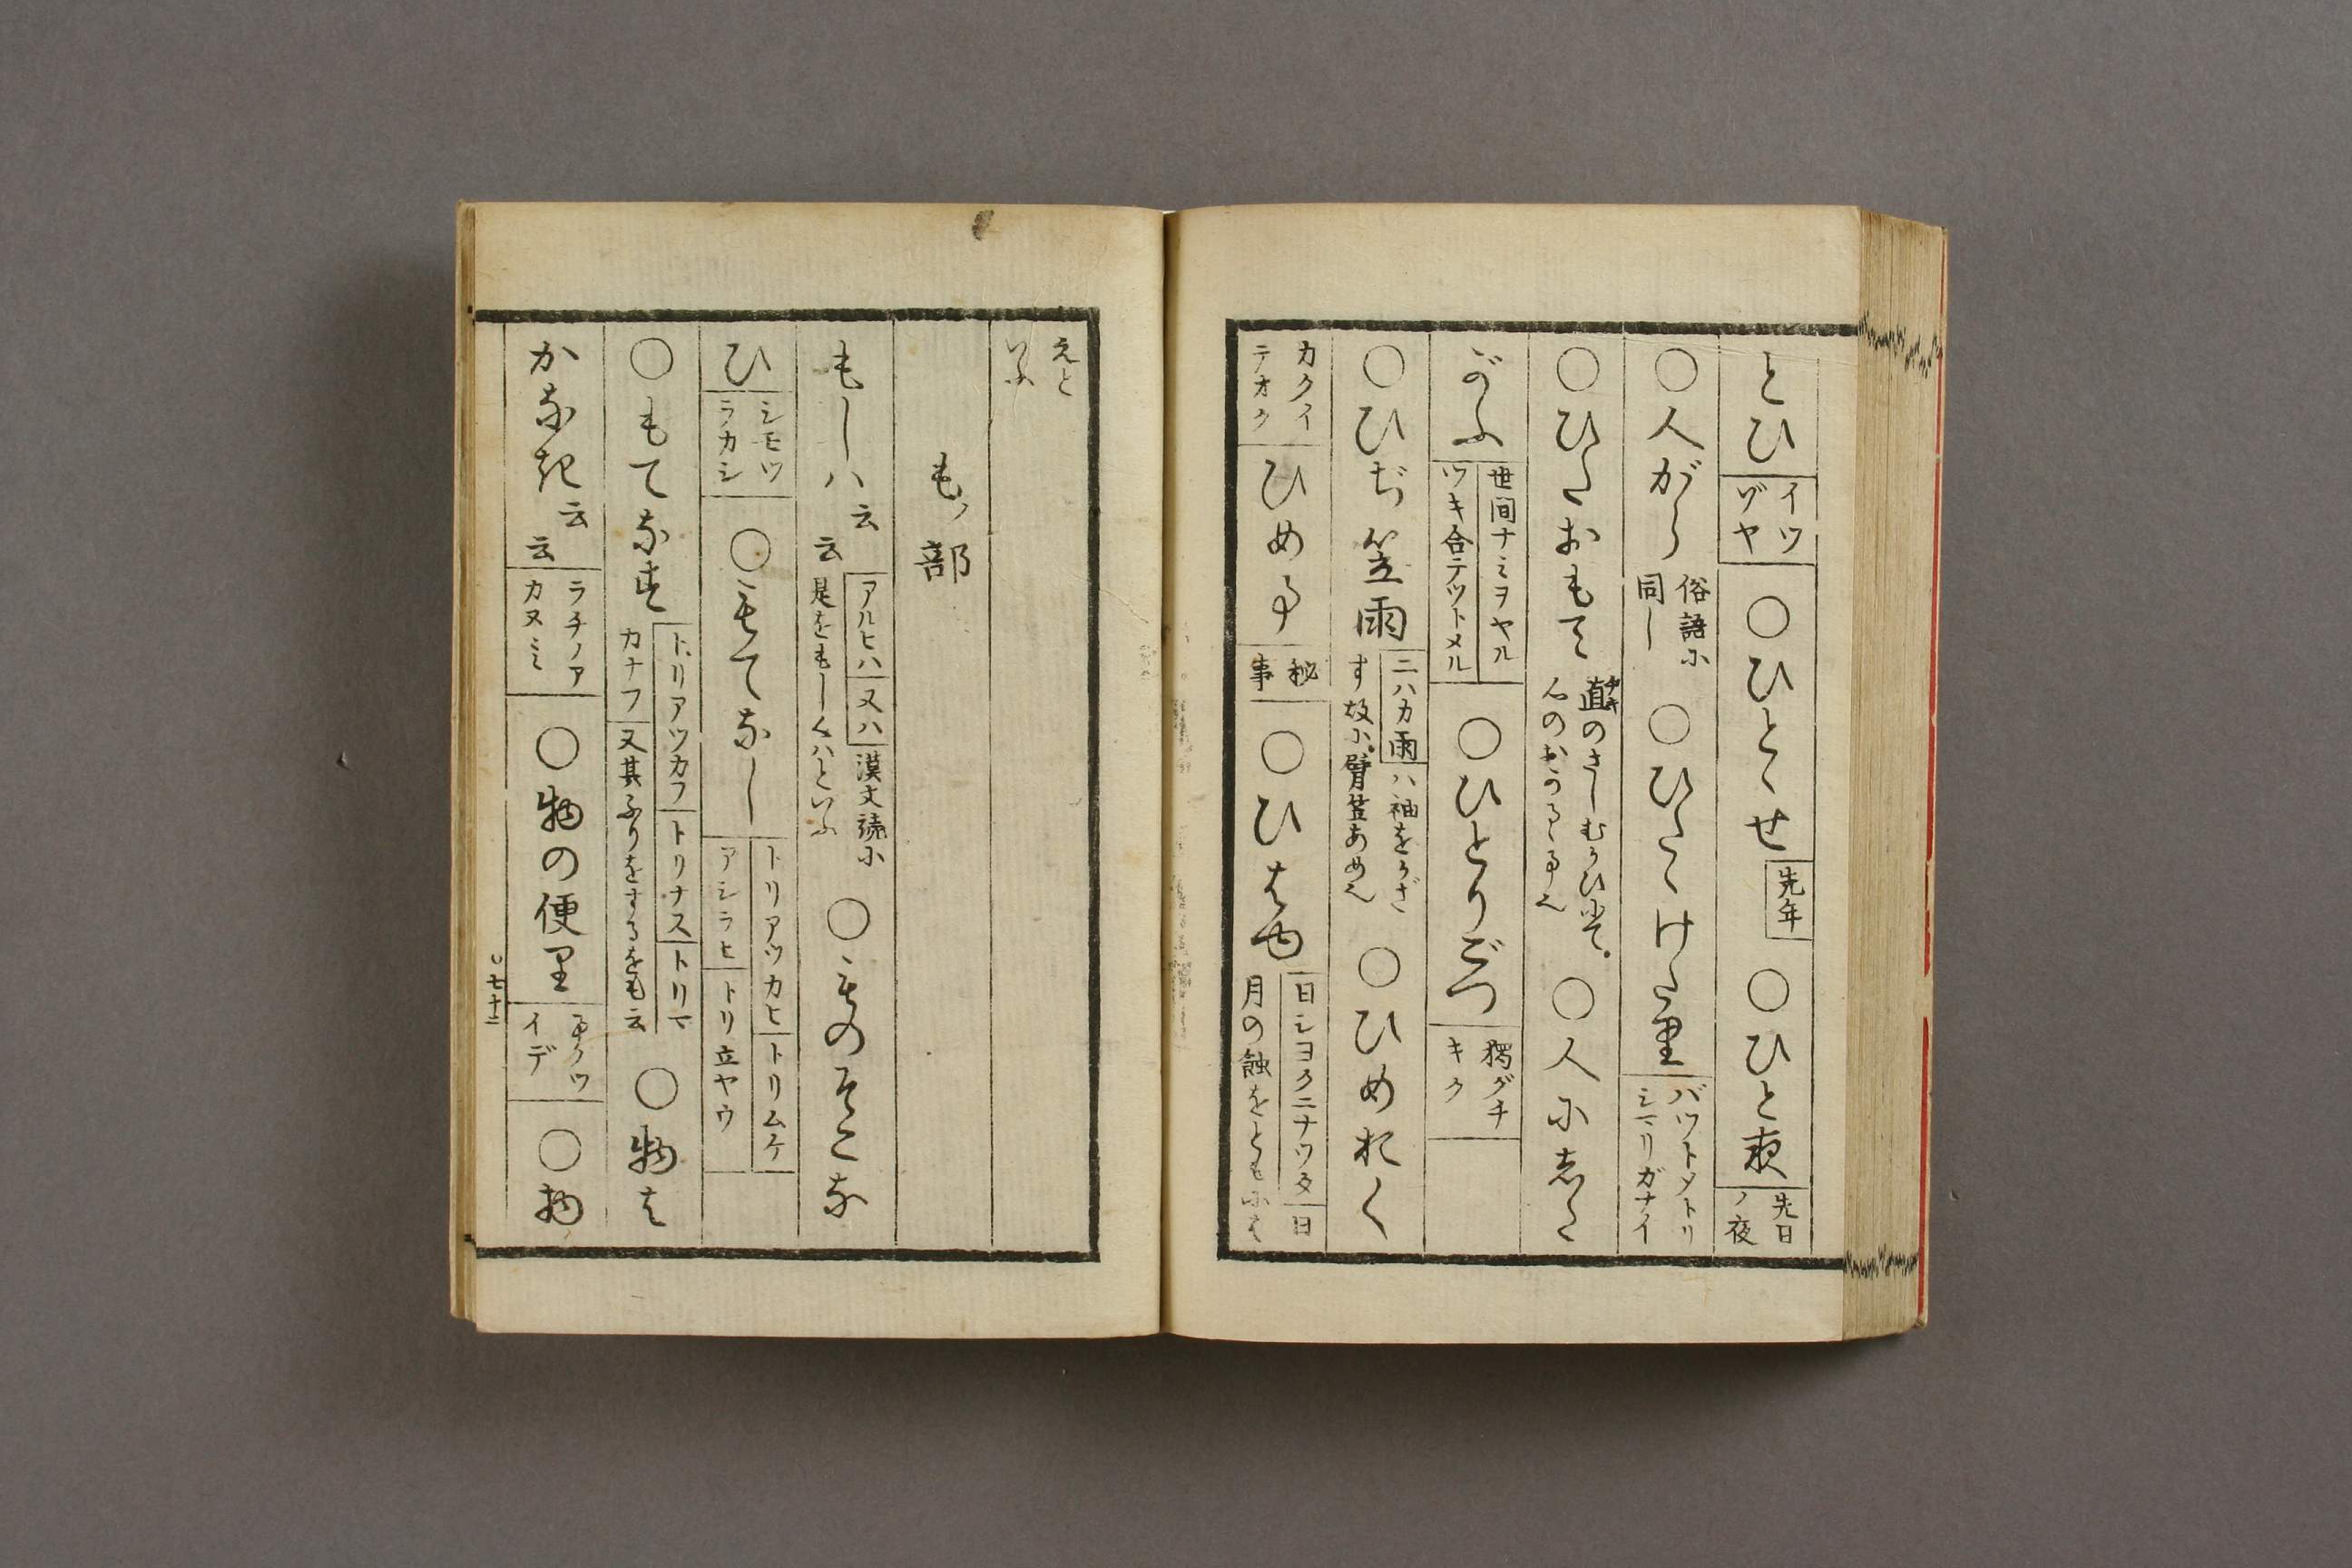 とひ イツ ゾヤ ○ひとゝせ 先年 ○ひと夜 先日 ノ夜
○人がら 俗語に 同し ○ひたゝけたり バツトメトリ シマリガナイ
○ひたおもて 直のさしむかひにて 人にした
がふ 世間ナミヲヤル ツキ合テツトメル ○ひとりごつ 獨グチ キク
○ひぢ笠雨 ニハカ雨 ハ袖をかざ す故に臂笠あめ也 ○ひめおく
カクイ テオク ひめ事 秘 事 ○ひはや 日シヨクニナツタ 日 月の蝕をともには
えと いふ
もノ部
もしハ云云 アルヒハ 又ハ 漢文読に 是をもしくハといふ ○ものそこな
ひ シモツ ラカシ ○もてなし トリアツカヒ トリムケ アシラヒ トリ立ヤウ
○もてなす トリアツカフ トリナス トリマカナフ 又其ふりをするをも云 ○物は
かなき云云 ラチノア カヌミ ○物の便里 事ノツ イデ ○物ノ
七十二